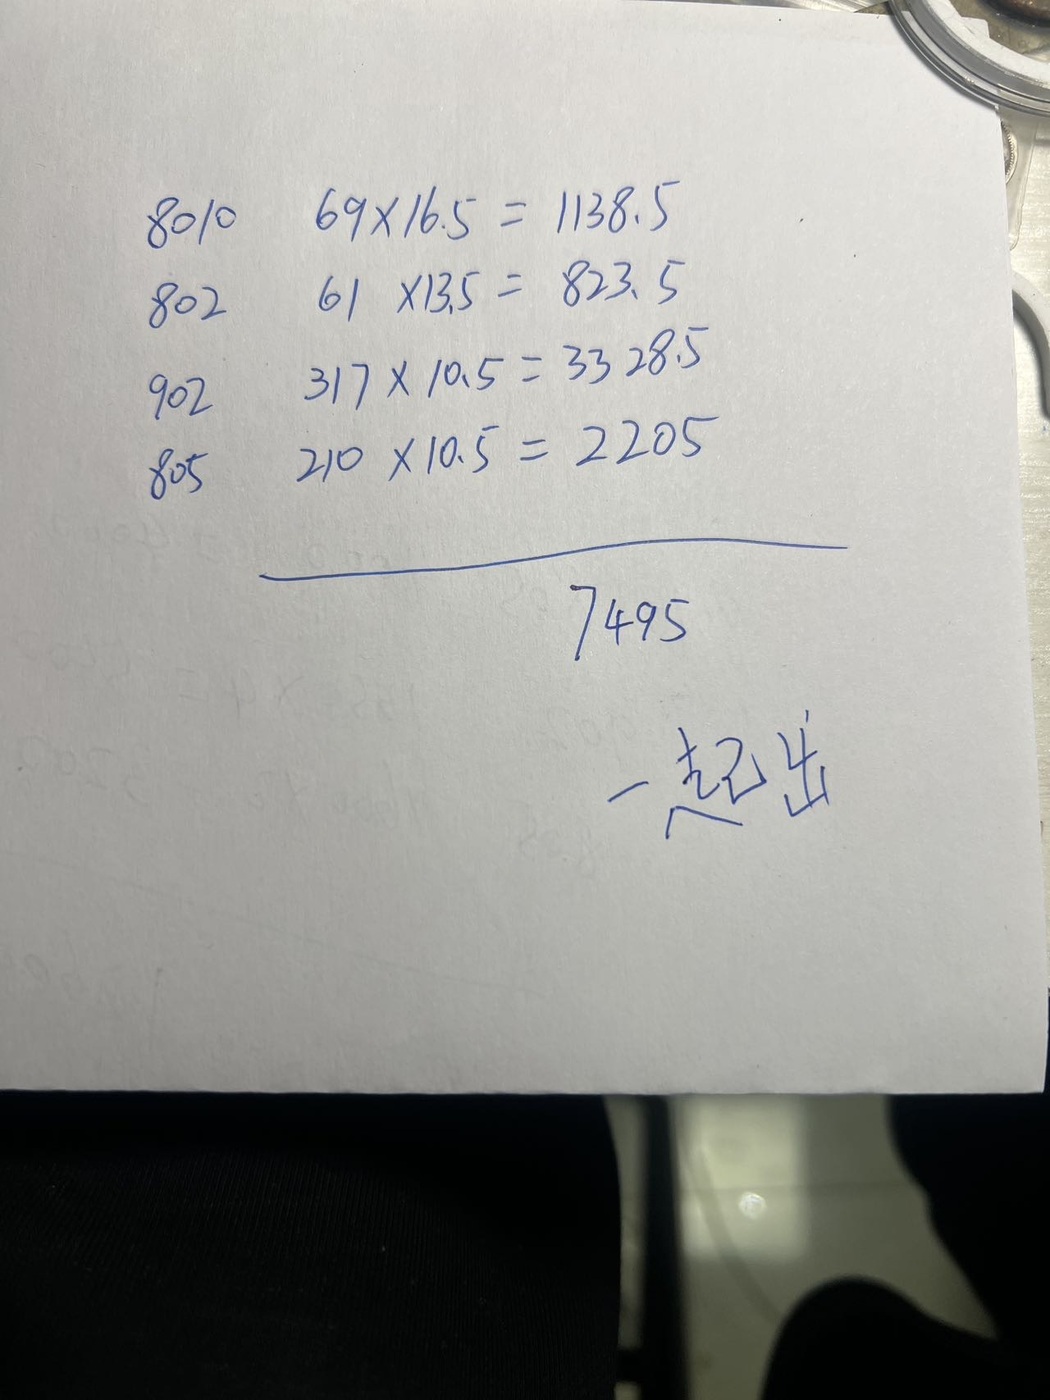 8010 69×16.5=1138.5
802 61×13.5=823.5
902 317×10.5=3328.5
805 210×10.5=2205
7495
一起出